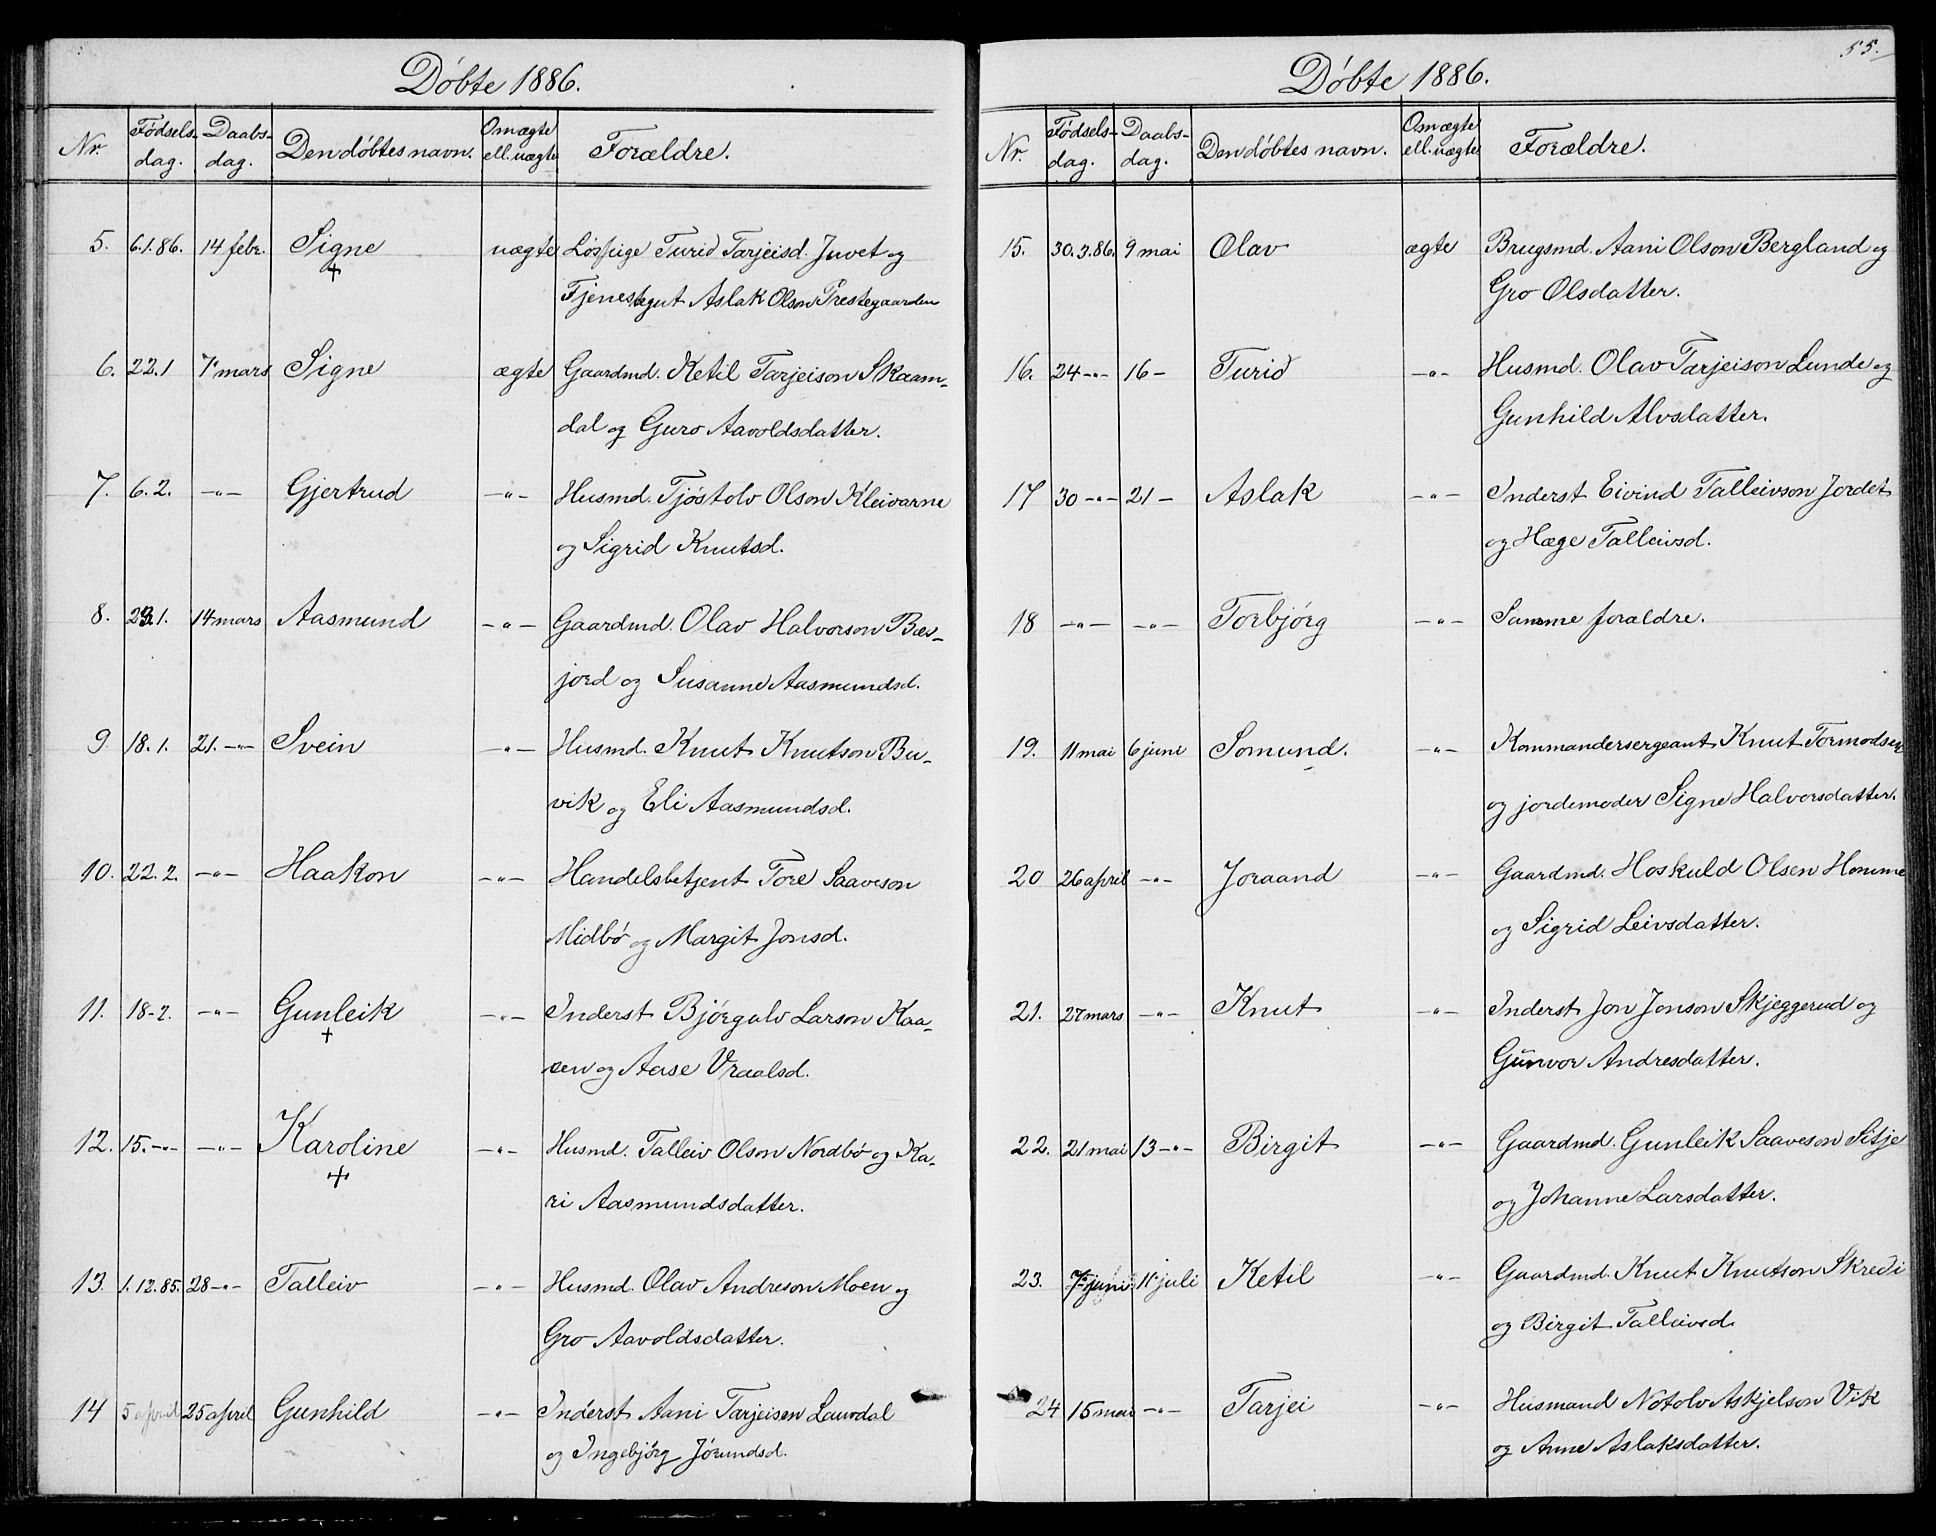 Døbte 1886.
Nr. Fødsels- dag. Daabs- dag. Den døbtes navn. Omægte ell. uægte Forældre.
5. 6.1.86. 14 febr. Signe uægte Løspige Turid Tarjeisd. Juvet og
+ Tjenestegut Aslak Olson Prestegaarden
6. 22.1 7de mars Signe ægte Gaardmd. Ketil Tarjeison Skaam-
dal og Guro Aavoldsdatter.
7. 6.2. -"- Gjertrud -"- Husmd. Tjøstolv Olson Kleivarne
og Sigrid Knutsd.
8. 1. 14 mars Aasmund -"- Gaardmd. Olav Halvorson Bæs-
jord og Susanne Aasmundsd.
9. 18.1. 21. -"- Svein -"- Husmd. Knut Knutson Bu-
vik og Eli Aasmundsd.
10. 22.2. -"- Haakon -"- Handelsbetjent Tore Saaveson
Midbø og Margit Jonsd.
11. 18-2. -"- Gunleik -"- Inderst Bjørgulv Larson Kaa-
+ sen og Aase Vraalsd.
12. 15. -"- -"- Karoline -"- Husmd. Talleiv Olson Nordbø og Ka-
+ ri Aasmundsdatter.
13. 1.12.85. 28 -"- Talleiv -"- Husmd. Olav Andreson Moen og
Gro Aavoldsdatter.
14 5 april 25 april Gunhild -"- Inderst Aani Tarjeisen Lauvdal
og Ingebjørg Jørundsd.
55.
Døbte 1886.
Nr. Fødsels- dag. Daabs- dag. Den døbtes navn. Omægte ell. uægte Forældre.
15. 30.3.86. 9 mai Olav ægte Brugsmd. Aani Olson Bergland og
Gro Olsdatter.
16. 24 -"- 16 - Turid -"- Husmd. Olav Tarjeison Lunde og
Gunhild Alvsdatter.
17 30 -"- 21 - Aslak -"- Inderst Eivind Talleivson Jordet
og Hæge Talleivsd.
18 -"- -"- Torbjørg -"- Samme forældre.
19. 11 mai 6 juni Somund. -"- Kommandersergeant Knut Tormodsen
og jordemoder Signe Halvorsdatter.
20 26 april -"- Joraand -"- Gaardmd. Hoskuld Olsen Homme
og Sigrid Leivsdatter.
21. 27 mars -"- Knut -"- Inderst Jon Jonson Skjeggerud og
Gunvor Andresdatter.
22. 21 mai 13 -"- Birgit -"- Gaardmd. Gunleik Saaveson Sitje
og Johanne Larsdatter.
23. 7de juni 11te juli Ketil -"- Gaardmd. Knut Knutson Skredi
og Birgit Talleivsd.
24 15 mai -"- Tarjei -"- Husmand Notolv Askjelson Vik
og Anne Aslaksdatter.